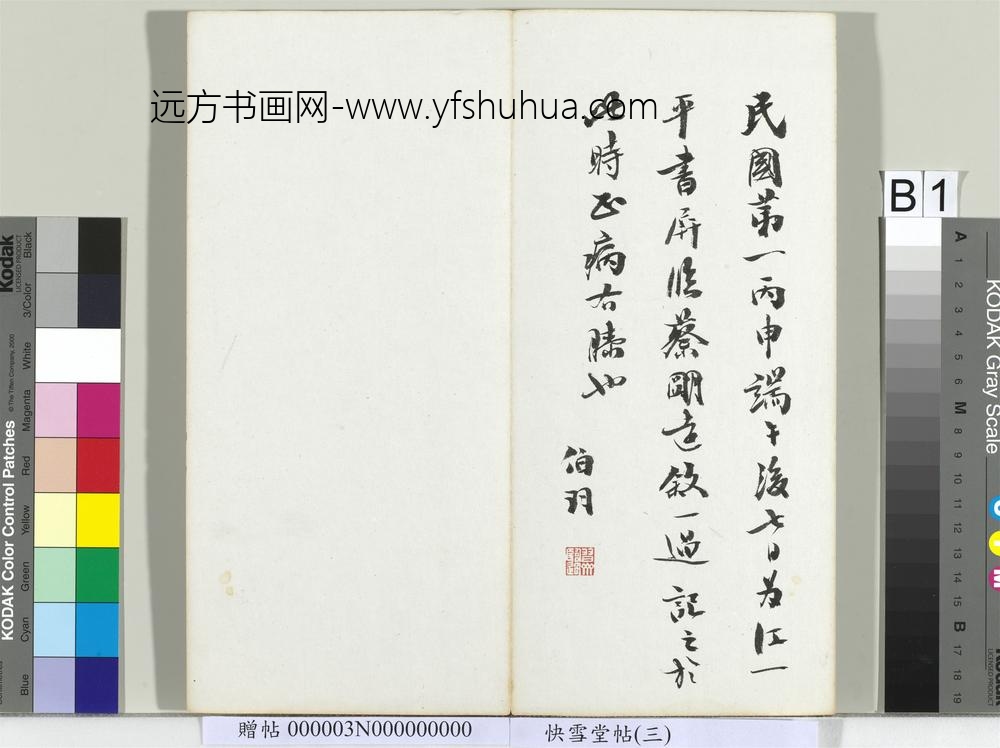 远方书画网-www.yfshuhua.com
民國第一丙申端午後七日為江一
平書屏臨蔡明遠敘一過記之於
此時正病右膝也
伯羽
B1
Kodak
LICENSED PRODUCT
KODAK Color Control Patches
© The Tiffen Company, 2000
Blue
Cyan
Green
Yellow
Red
Magenta
White
3/Color
Black
KODAK Gray Scale
A 1 2 3 4 5 6 M 8 9 10 11 12 13 14 15 B 17 18 19
贈帖 000003N000000000
快雪堂帖(三)